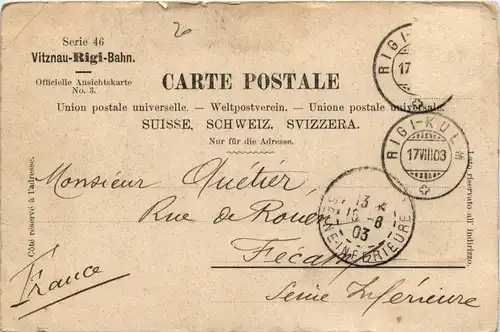 Serie 46
Vitznau-Rigi-Bahn.
Officielle Ansichtskarte
No. 3.
CARTE POSTALE
Union postale universelle. — Weltpostverein. — Unione postale universale.
SUISSE. SCHWEIZ. SVIZZERA.
Nur für die Adresse.
RIGI-
17
RIGI-KULM
17 VIII 03
Côté réservé à l'adresse.
Lato riservato all indirizzo.
Monsieur Quétier,
Rue de Rouen
Fécamp
Seine Inférieure
France
SEINE-INFERIEURE
03